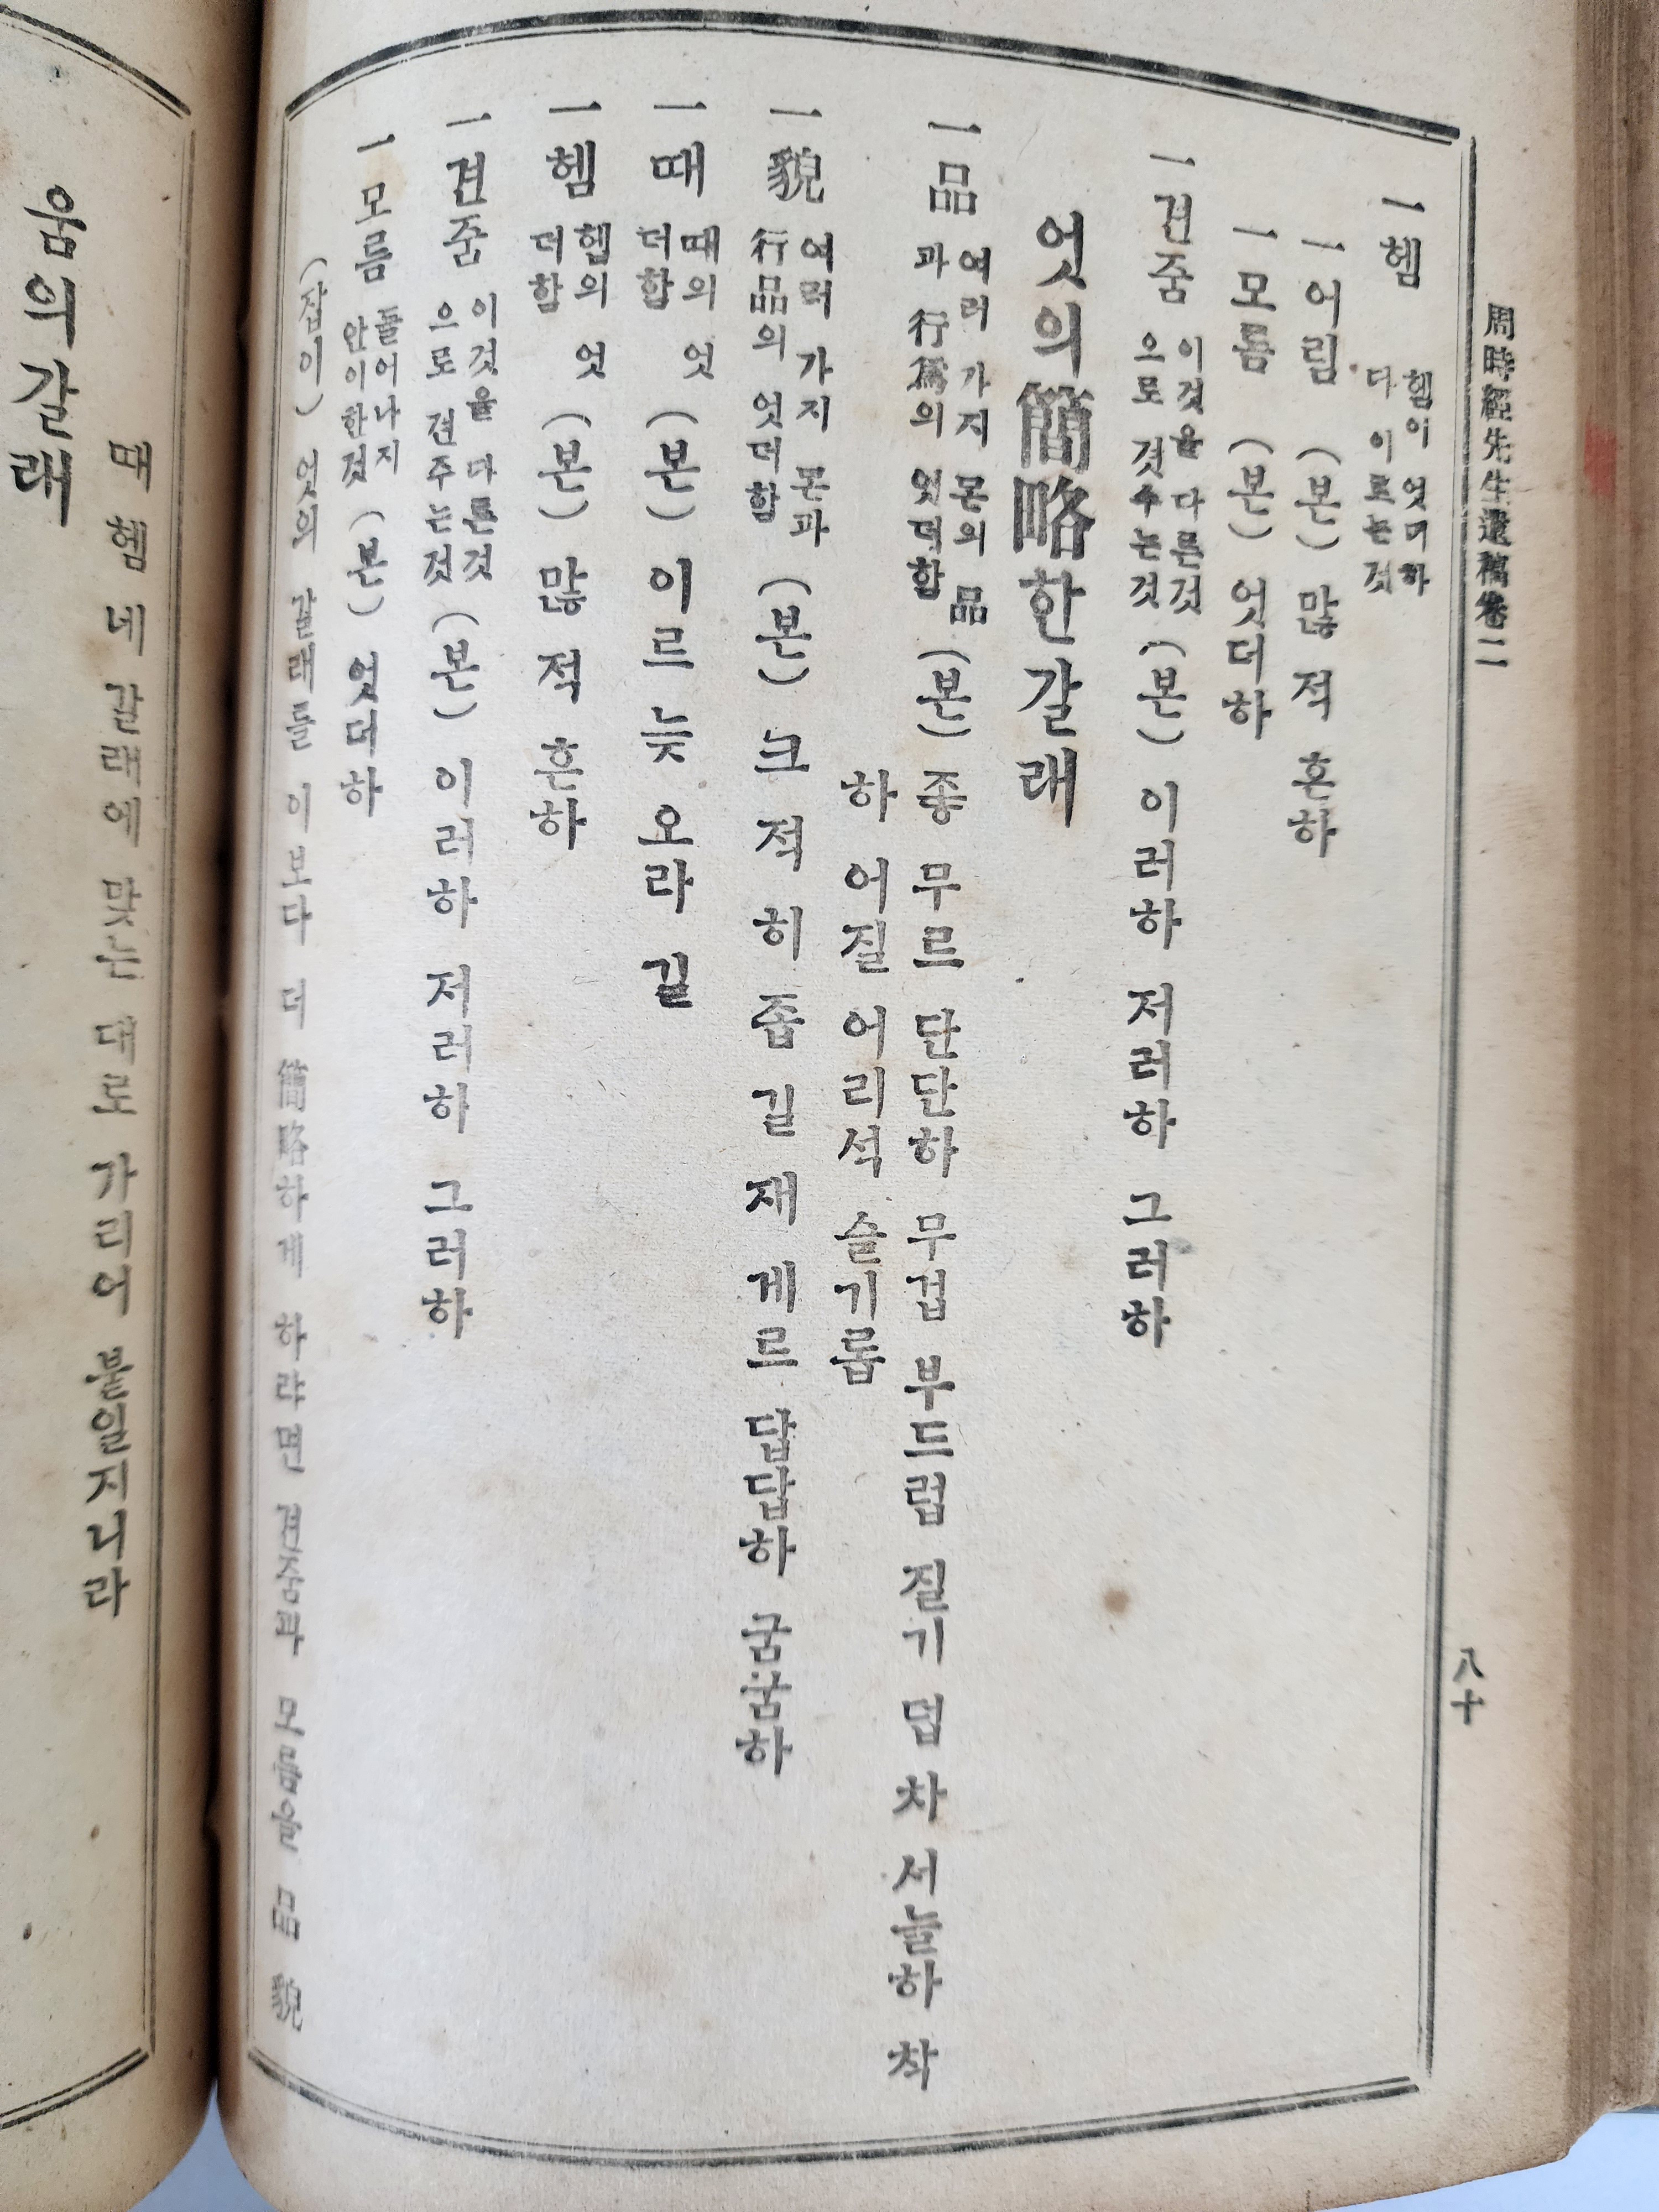 周時經先生遺稿卷二
八十
一헴 헴이 엇더하
다 이르는 것
一어림 (본) 많 적 흔하
一모름 (본) 엇더하
一견줌 이것을 다른것
으로 겻주는것 (본) 이러하 저러하 그러하
엇의 簡略한 갈래
一品 여러 가지 몬의 品
과 行爲의 엇더함 (본) 좋 무르 단단하 무겁 부드럽 질기 덥 차 서늘하 착
하 어질 어리석 슬기롭
一貌 여러 가지 몬과
行品의 엇더함 (본) 크 적 히 좁 길 재 게르 답답하 굼굼하
一때 때의 엇
더함 (본) 이르 늦 오라 길
一헴 헴의 엇
더함 (본) 많 적 흔하
一견줌 이것을 다른것
으로 견주는것 (본) 이러하 저러하 그러하
一모름 들어나지
안이한것 (본) 엇더하
(잡이) 엇의 갈래를 이보다 더 簡略하게 하랴면 견줌과 모름을 品 貌
때 헴 네 갈래에 맞는 대로 가리어 붙일지니라
움의 갈래